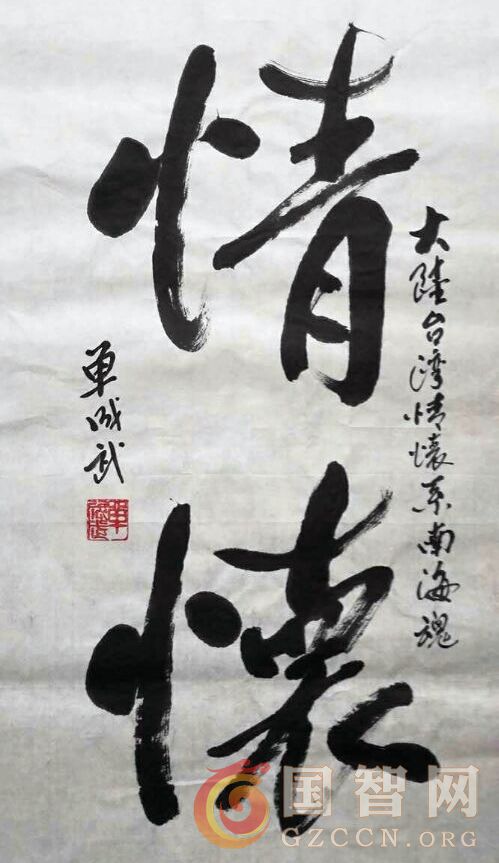 情懷
大陸台湾情懷系南海魂
单成武
国智网
GZCCN.ORG